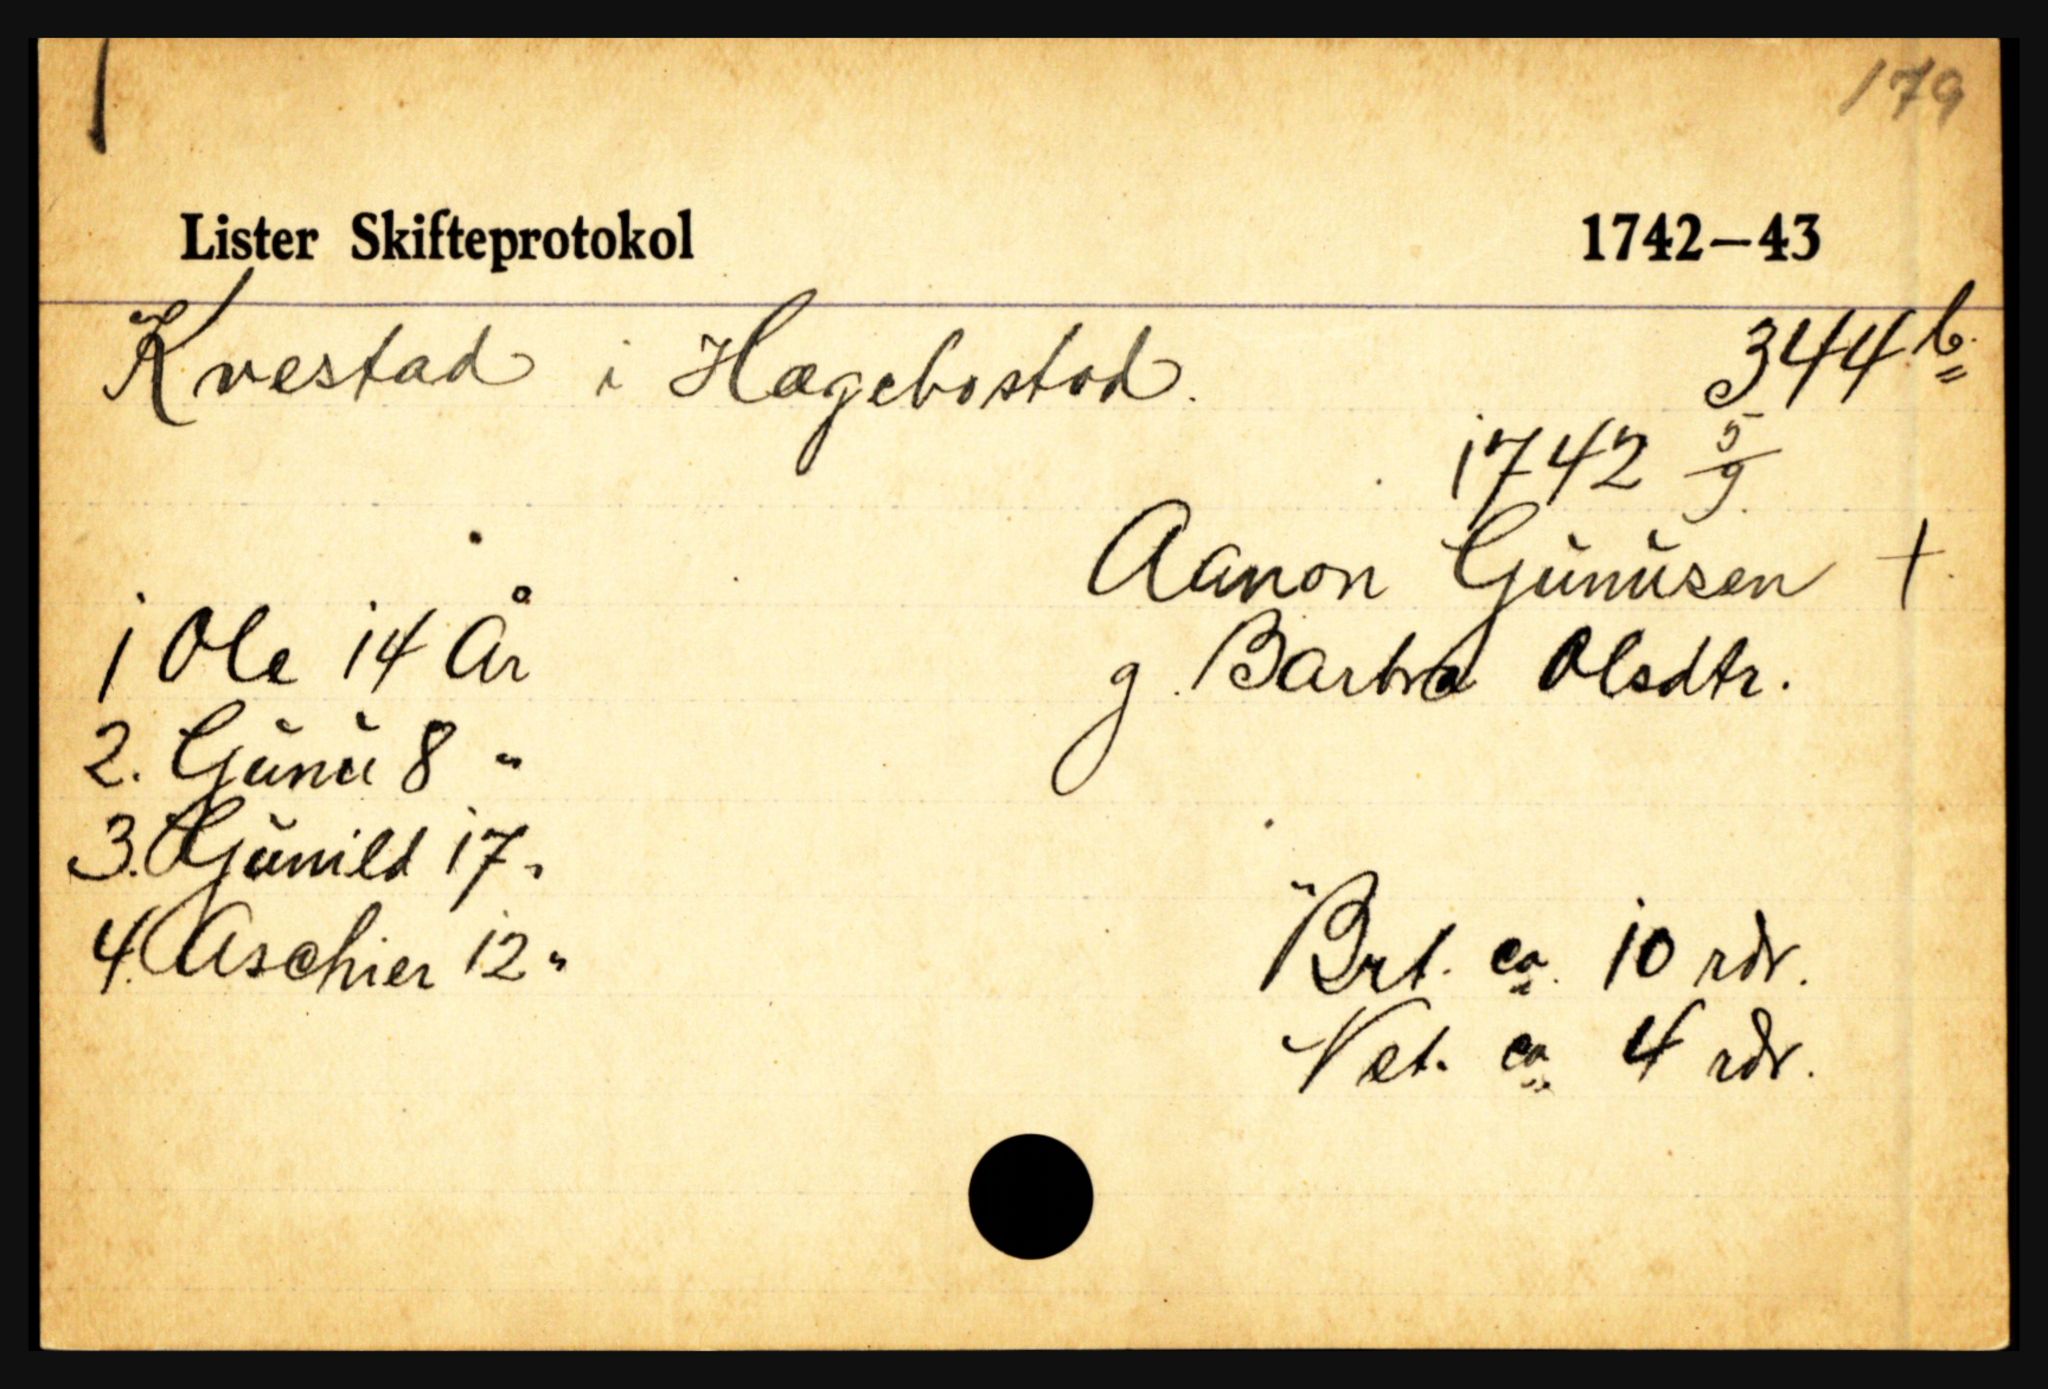 179
Lister Skifteprotokol 1742—43
Kvestad i Hægebostad. 344 b.
1742 5/9
Aanon Gunusen +
g. Barbra Olsdtr.
1 Ole 14 År
2. Gunu 8 "
3. Gunild 17 "
4. Aschier 12 "
Brt. ca. 10 rdr.
Net. ca 4 rdr.